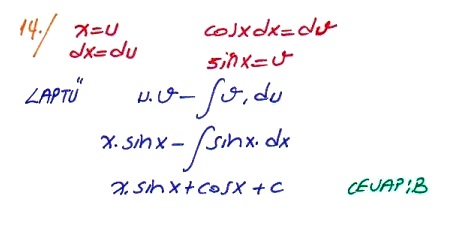 14./ x=u cosx dx=dv
dx=du sinx=v
LAPTÜ u.v-∫v.du
x.sinx-∫sinx.dx
x.sinx+cosx+c CEVAP:B